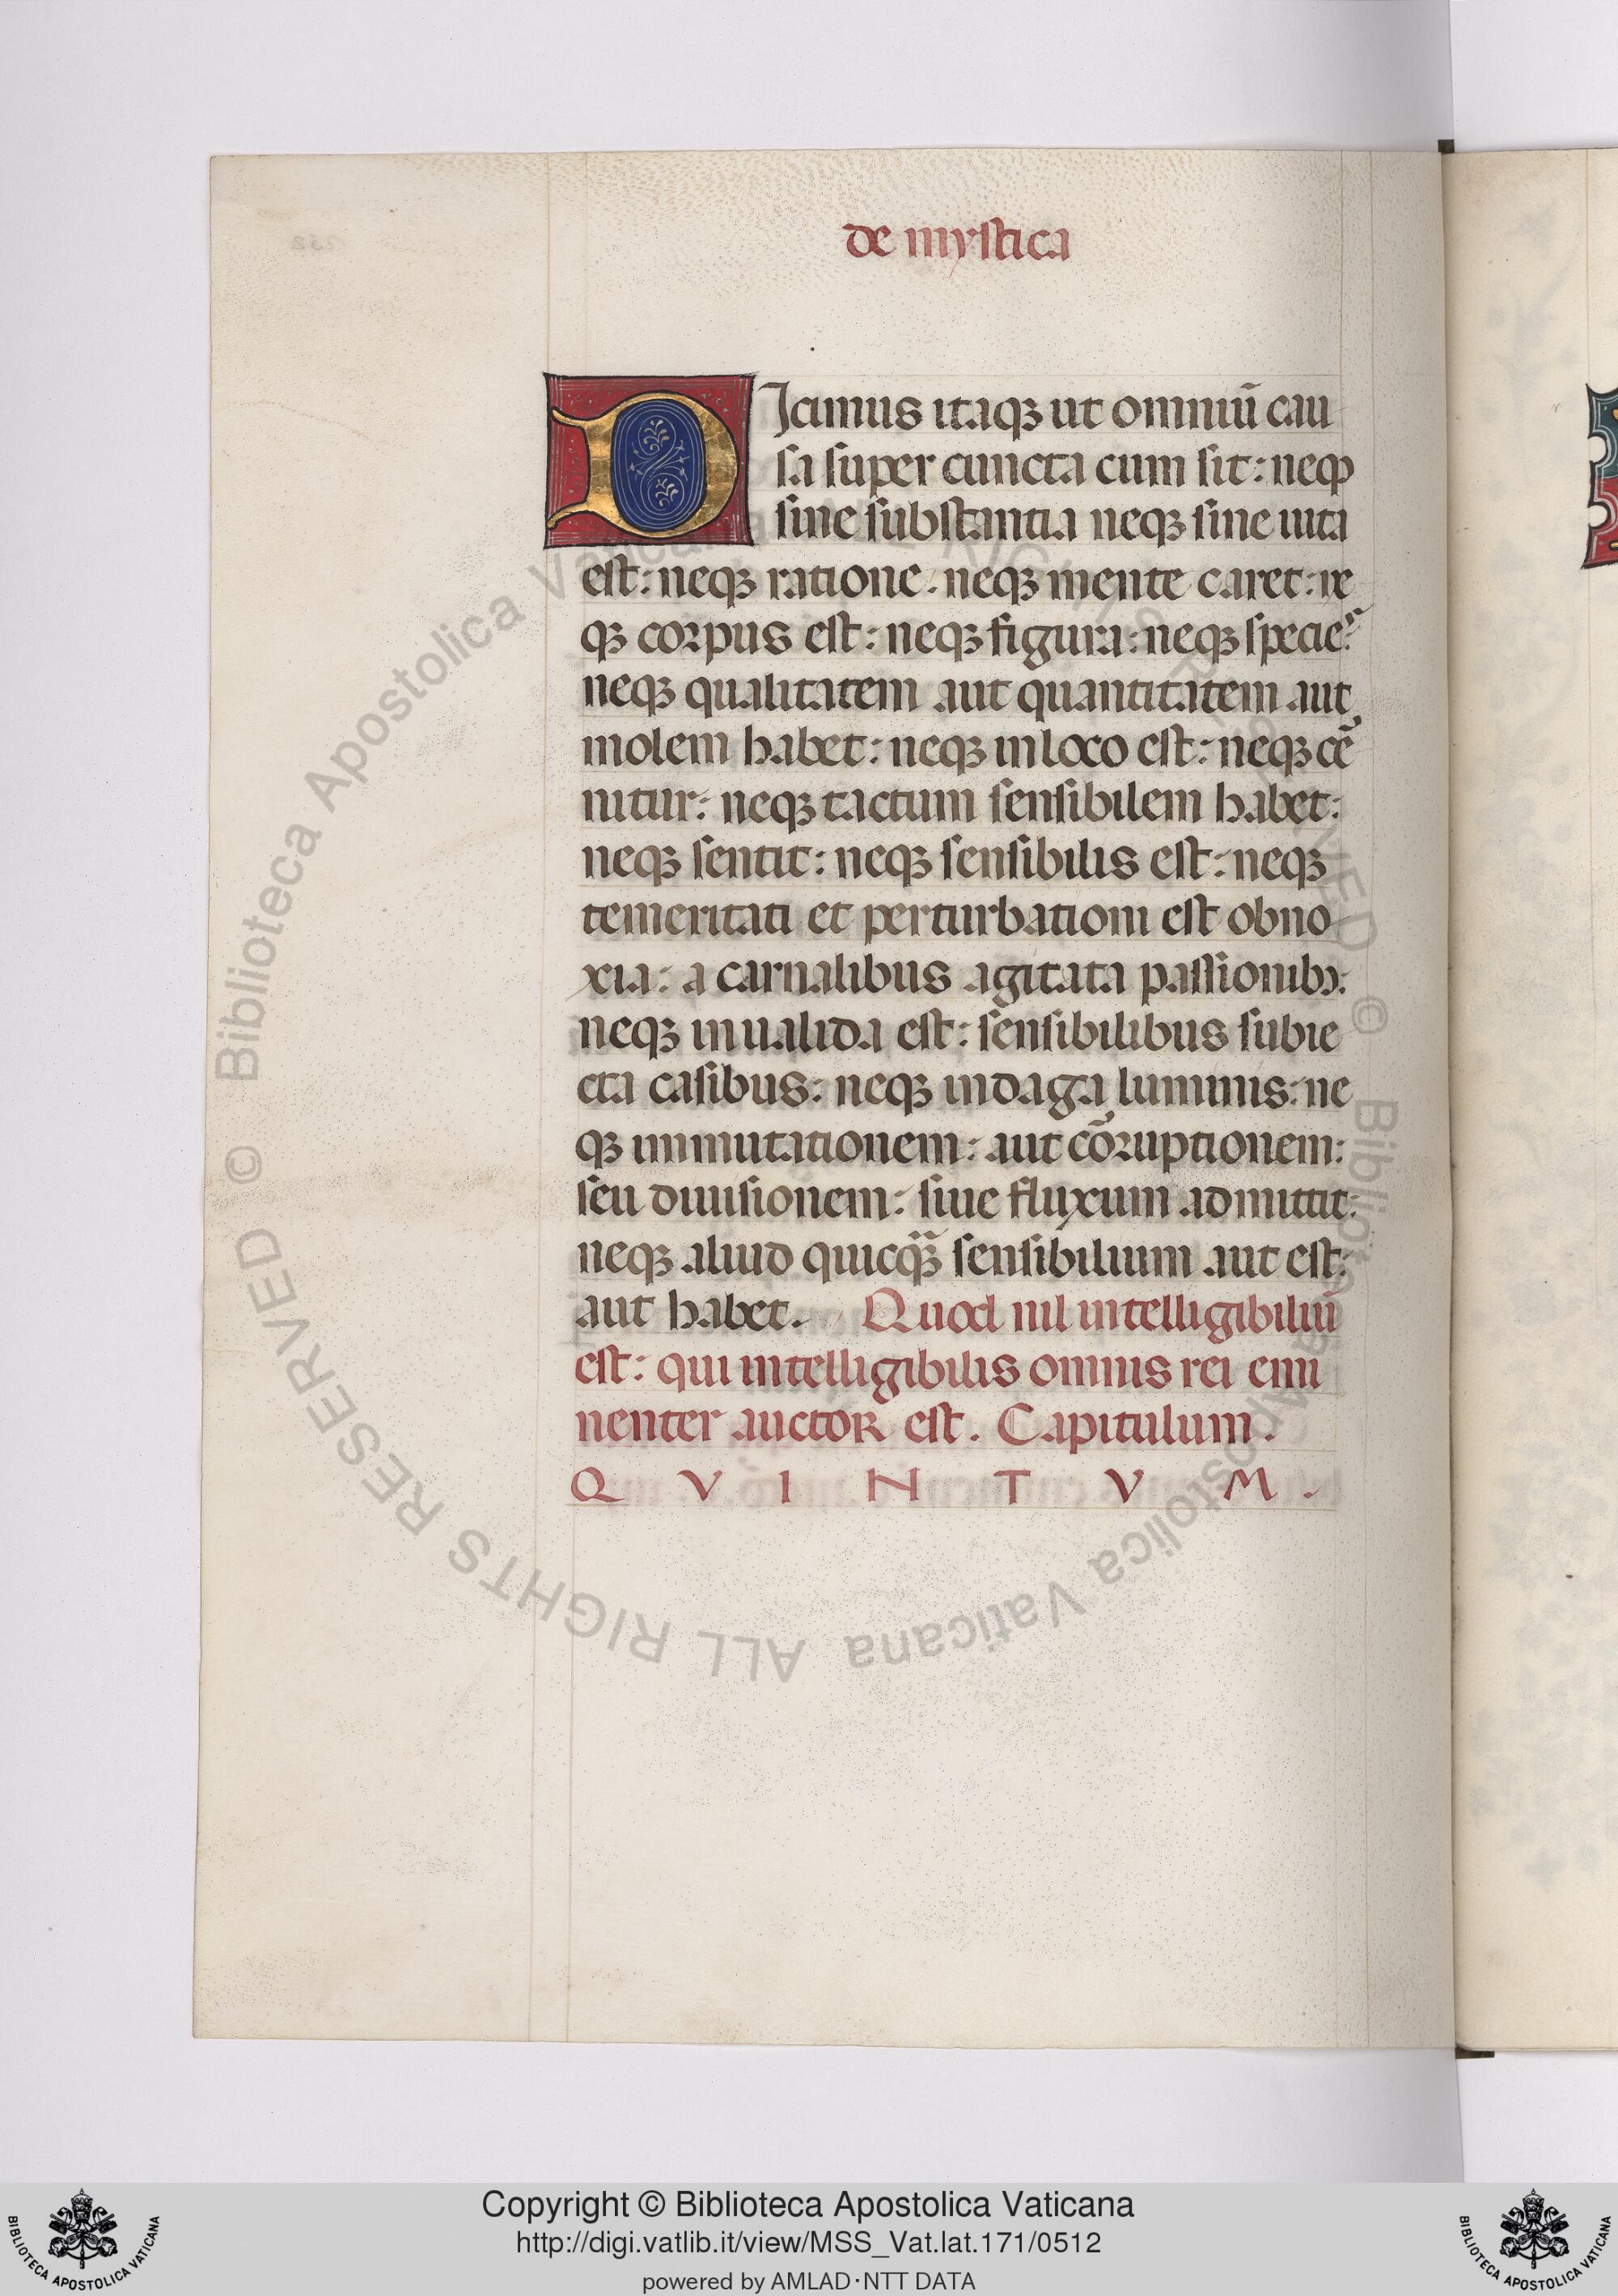 de mystica
DIcimus itaqꝫ ut omniū cau
sa super cuncta cum sit: neqꝫ
sine substantia neqꝫ sine uita
est: neqꝫ ratione. neqꝫ mente caret: ne
qꝫ corpus est: neqꝫ figura: neqꝫ specieˢ:
neqꝫ qualitatem aut quantitatem aut
molem habet: neqꝫ in loco est: neqꝫ cē
nitur: neqꝫ tactum sensibilem habet:
neqꝫ sentit: neqꝫ sensibilis est: neqꝫ
temeritati et perturbationi est obno
xia: a carnalibus agitata passionibꝫ:
neqꝫ inualida est: sensibilibus subie
cta casibus: neqꝫ indaga luminis: ne
qꝫ immutationem: aut cōruptionem:
seu diuisionem: siue fluxum admittit:
neqꝫ aliud quicqᷓ sensibilium aut est:
aut habet. Quod nil intelligibiliū
est: qui intelligibilis omnis rei emi
nenter auctor est. Capitulum.
Q V I N T V M .
© Biblioteca Apostolica Vaticana ALL RIGHTS RESERVED © Biblioteca Apostolica Vaticana ALL RIGHTS RESERVED
Copyright © Biblioteca Apostolica Vaticana
http://digi.vatlib.it/view/MSS_Vat.lat.171/0512
powered by AMLAD·NTT DATA
BIBLIOTECA APOSTOLICA VATICANA
BIBLIOTECA APOSTOLICA VATICANA